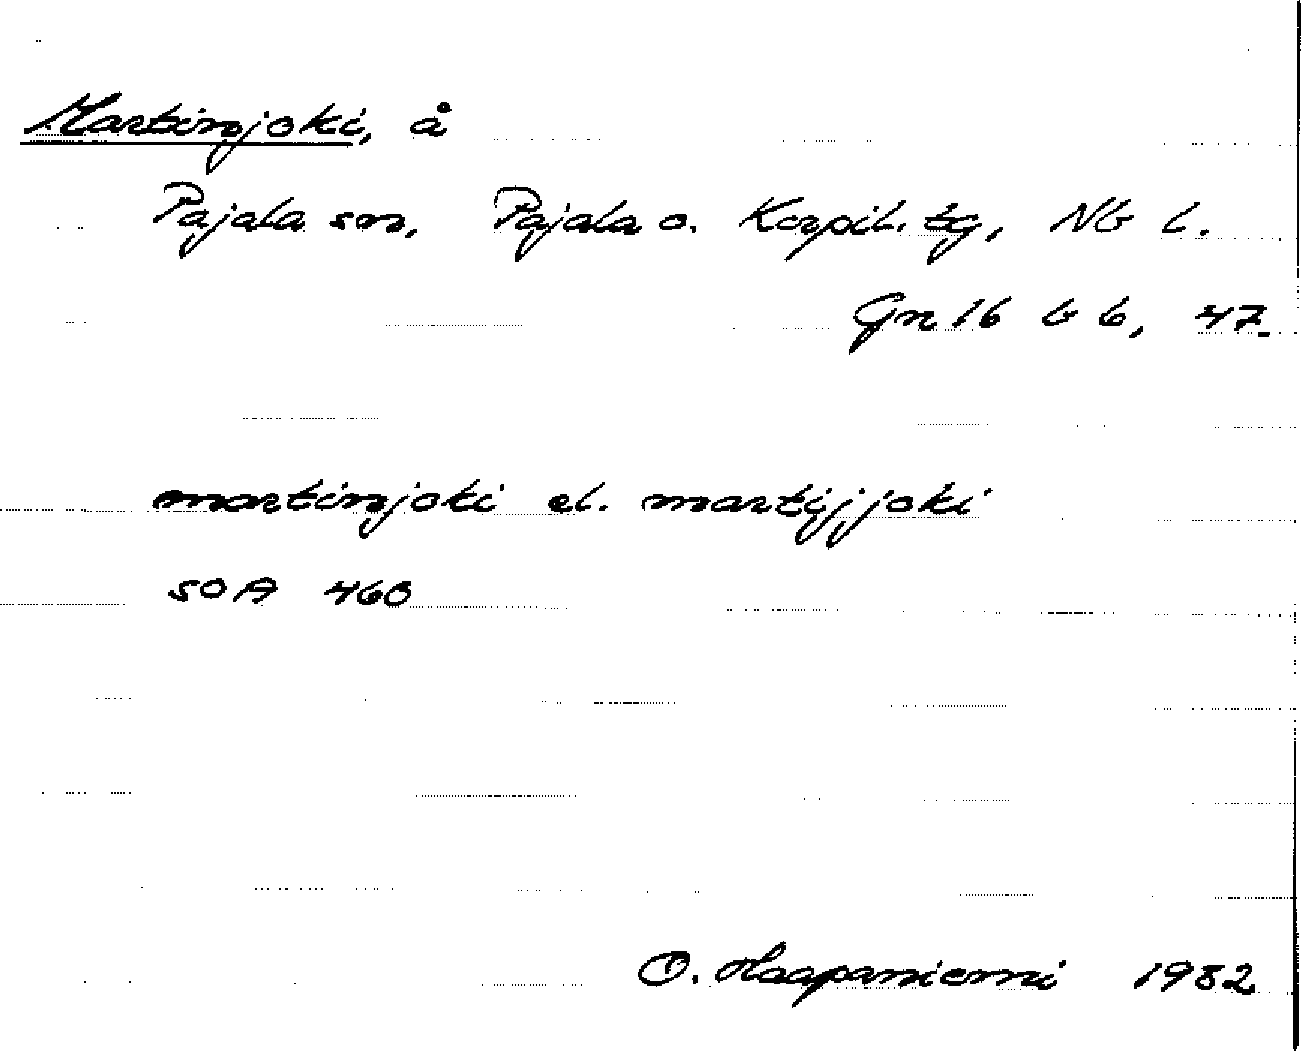 Martinjoki, å
Pajala sn, Pajala o. Korpil. tg, Nb l.
Gn 16 b b, 47.
martinjoki el. martijjoki
SOA 460
O. Haapaniemi 1982